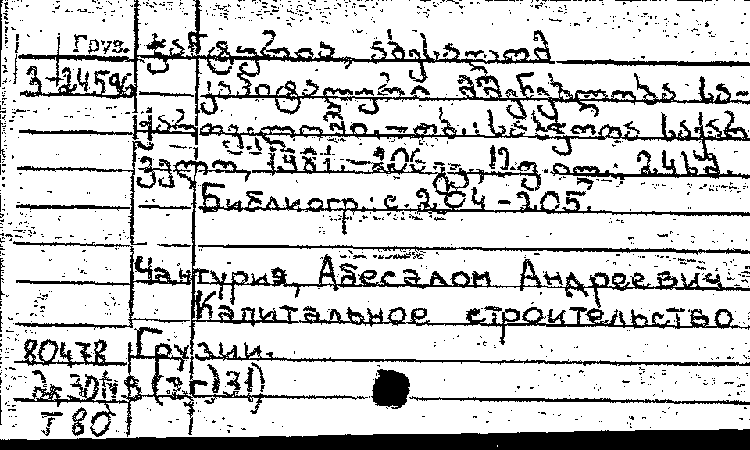 Груз. ჭანტურია, აბესალომ
3-24596 კაპიტალური მშენებლობა სა-
ქართველოში. – თბ.: საბჭოთა საქარ
თველო, 1981. – 206 გვ., 12 ფ. ილ.; 24 სმ.
Библиогр.: с. 204 – 205.
Чантурия, Абесалом Андреевич
Капитальное строительство
80478 Грузии.
(2г)31)
Т 80